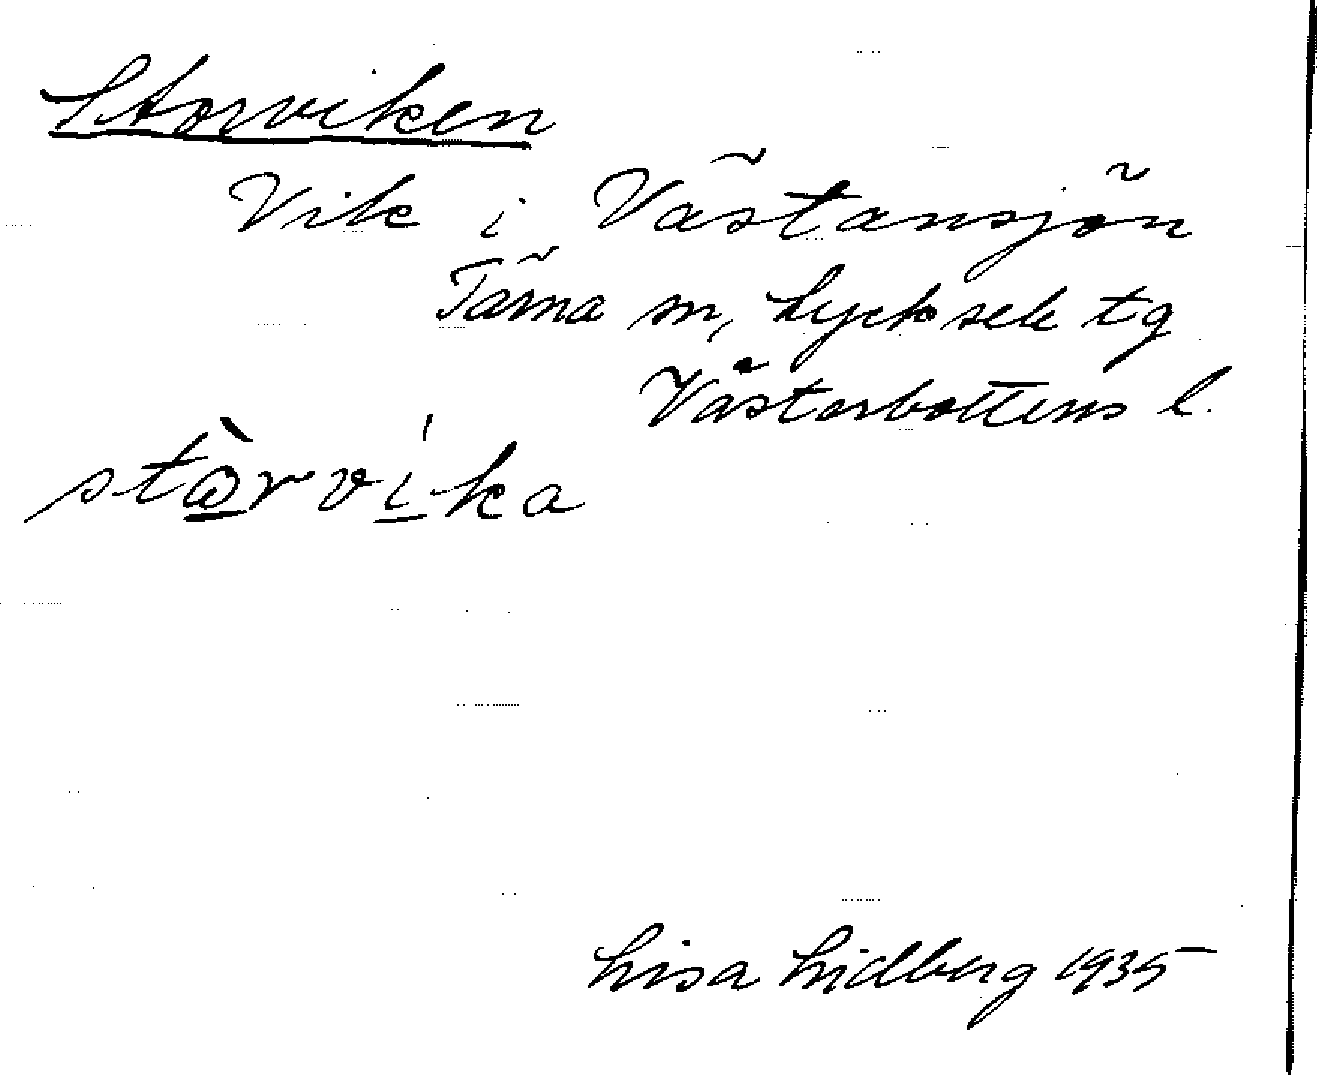 Storviken
Vik i Västansjön
Tärna sn, Lycksele tg
Västerbottens l.
stὼ̲rvi̲̍ka
Lisa Lidberg 1935